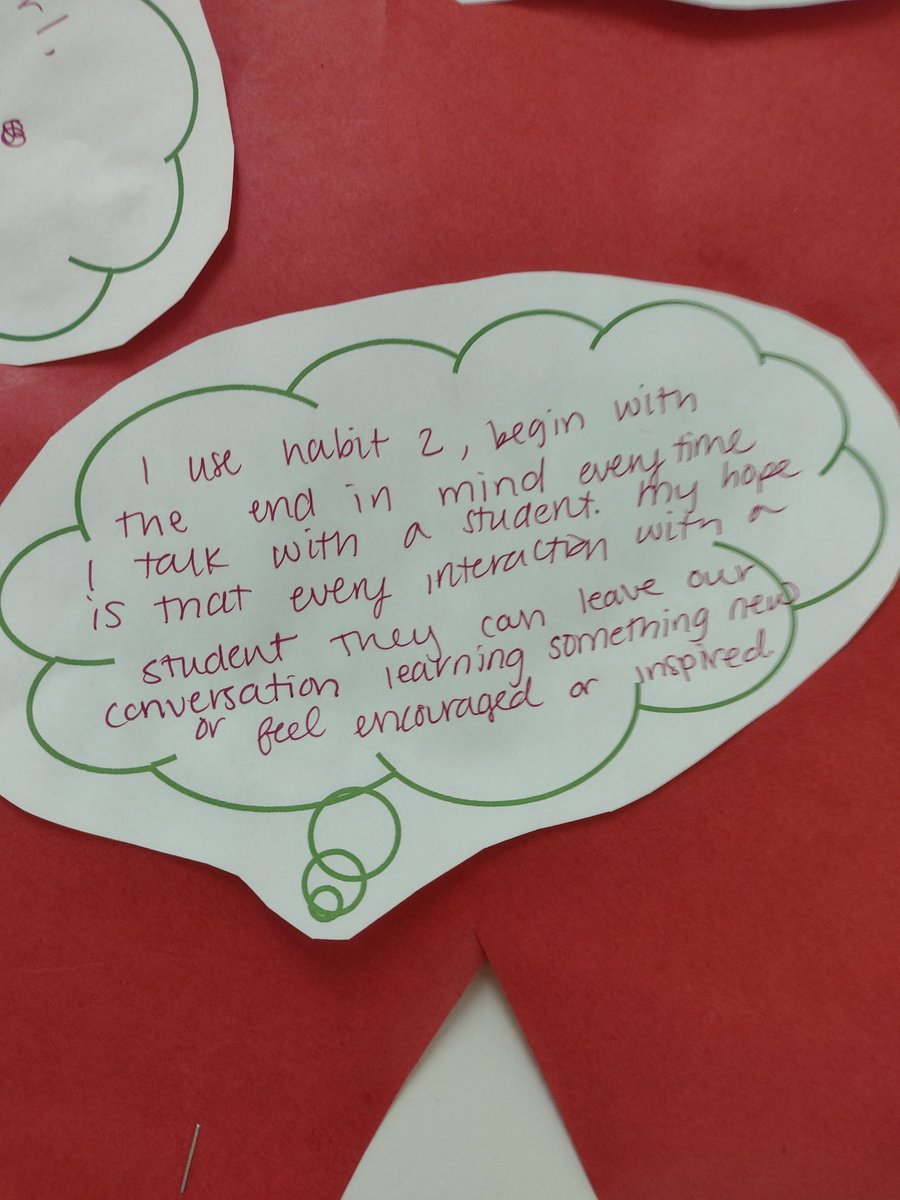 I use habit 2, begin with
the end in mind every time
I talk with a student. My hope
is that every interaction with a
student they can leave our
conversation learning something new
or feel encouraged or inspired.